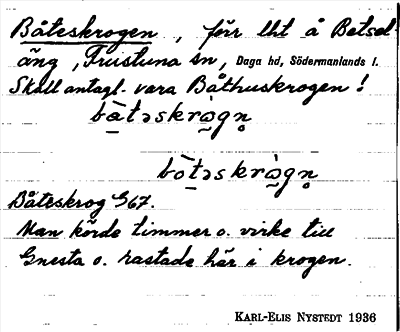 Båteskrogen, förr lht å Betsel-
äng, Frustuna sn, Daga hd, Södermanlands l.
Skall antagl. vara Båthuskrogen!
bà̱təskrò̱gn̥
bò̱təskrò̱gn̥
Båteskrog G67.
Man körde timmer o. virke till
Gnesta o. rastade här i krogen.
KARL-ELIS NYSTEDT 1936